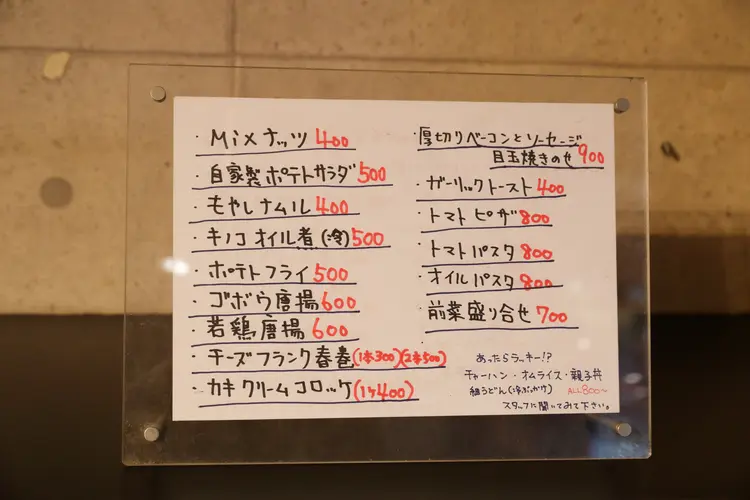 ・Mixナッツ 400
・自家製ポテトサラダ 500
・もやしナムル 400
・キノコオイル煮(冷) 500
・ポテトフライ 500
・ゴボウ唐揚 600
・若鶏唐揚 600
・チーズフランク春巻(1本300)(2本500)
・カキクリームコロッケ(1ケ400)
・厚切りベーコンとソーセージ
目玉焼きのせ 900
・ガーリックトースト 400
・トマトピザ 800
・トマトパスタ 800
・オイルパスタ 800
・前菜盛り合せ 700
あったらラッキー!?
チャーハン・オムライス・親子丼
細うどん(冷ぶっかけ) ALL800〜
スタッフに聞いてみて下さい。